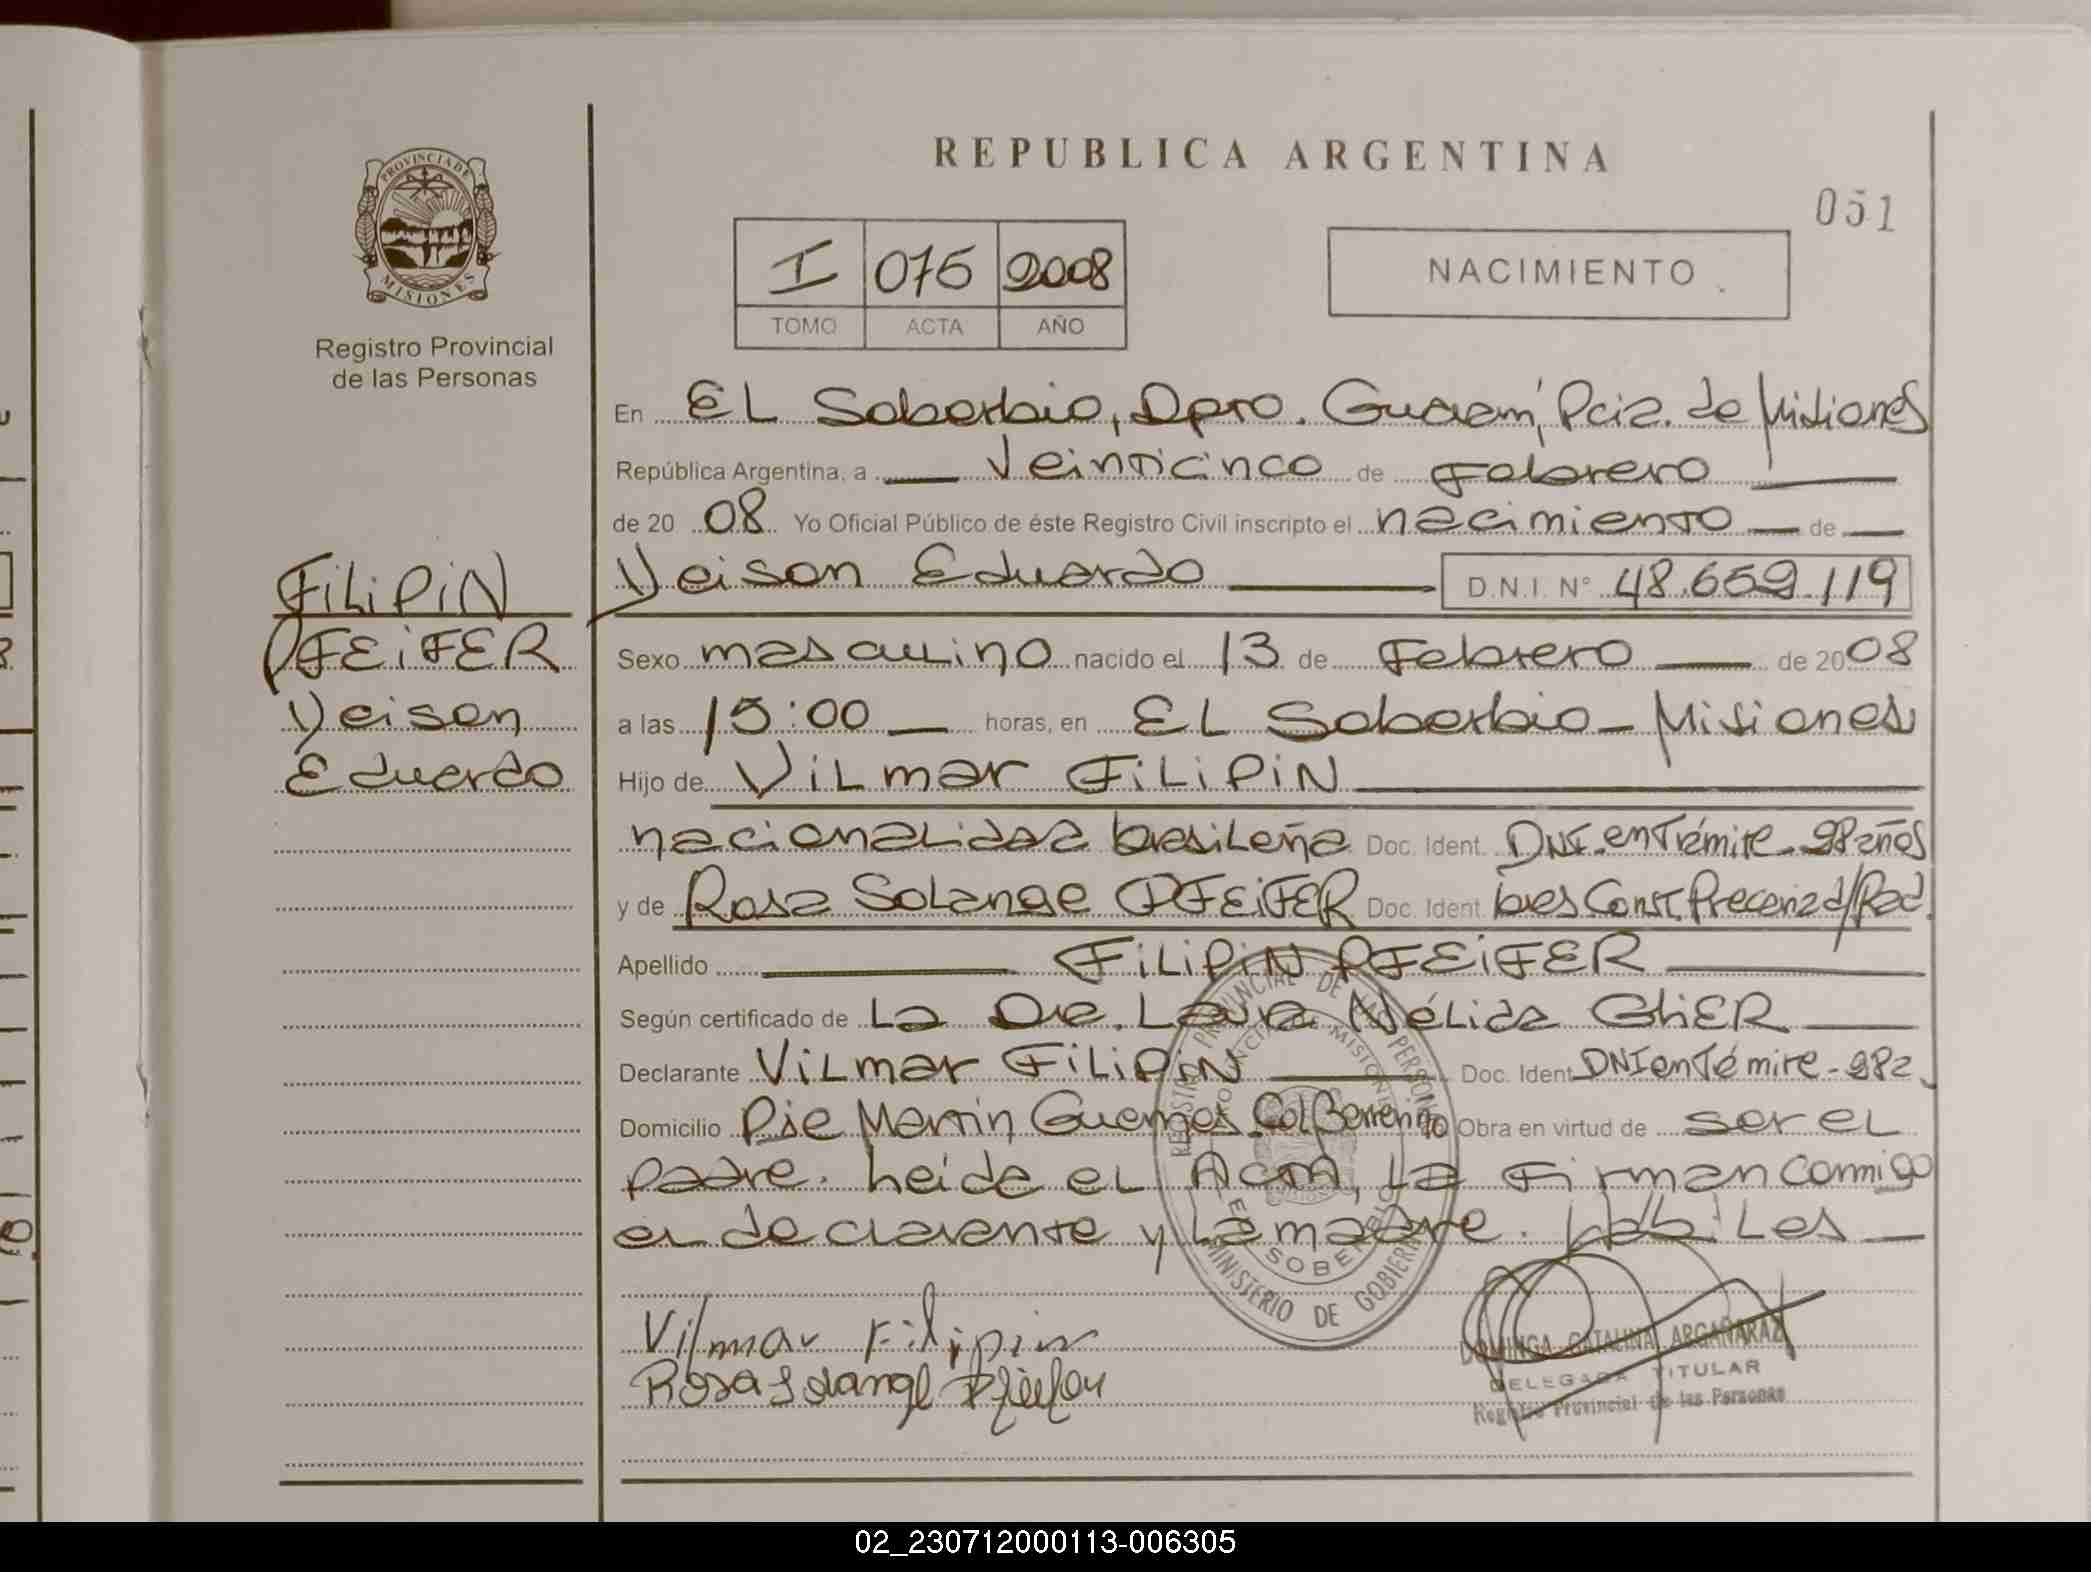 REPUBLICA ARGENTINA
051
PROVINCIA DE
MISIONES
Registro Provincial
de las Personas
I 075 2008
TOMO ACTA AÑO
NACIMIENTO
En EL Soberbio, Dpto. Guaraní, Pcia. de Misiones
República Argentina, a Veinticinco de Febrero
de 2008 Yo Oficial Público de éste Registro Civil inscripto el nacimiento de
FILIPIN
PFEIFER
Yeison
Eduardo
Yeison Eduardo D.N.I. N° 48.659.119
Sexo masculino nacido el 13 de Febrero de 2008
a las 15:00 horas, en EL Soberbio - Misiones
Hijo de Vilmar FILIPIN
nacionalidad brasileña Doc. Ident. DNI en Trámite - 28 años
y de Rosa Solange PFEIFER Doc. Ident.
Apellido FILIPIN PFEIFER
Según certificado de La Dra. Laura Nélida GHER
Declarante Vilmar FILIPIN Doc. Ident DNI en Trámite - 28 a
Domicilio Pje Martin Guemes Col Obra en virtud de ser el
padre. Leida el Acta, La Firman conmigo
el declarante y la madre. Habiles
REGISTRO PROVINCIAL DE LAS PERSONAS
PROVINCIA DE MISIONES
EL SOBERBIO
MINISTERIO DE GOBIERNO
Vilmar Filipin
Rosa Solange Pfeifer
DOMINGA CATALINA ARGAÑARAZ
DELEGADA TITULAR
Registro Provincial de las Personas
02_230712000113-006305